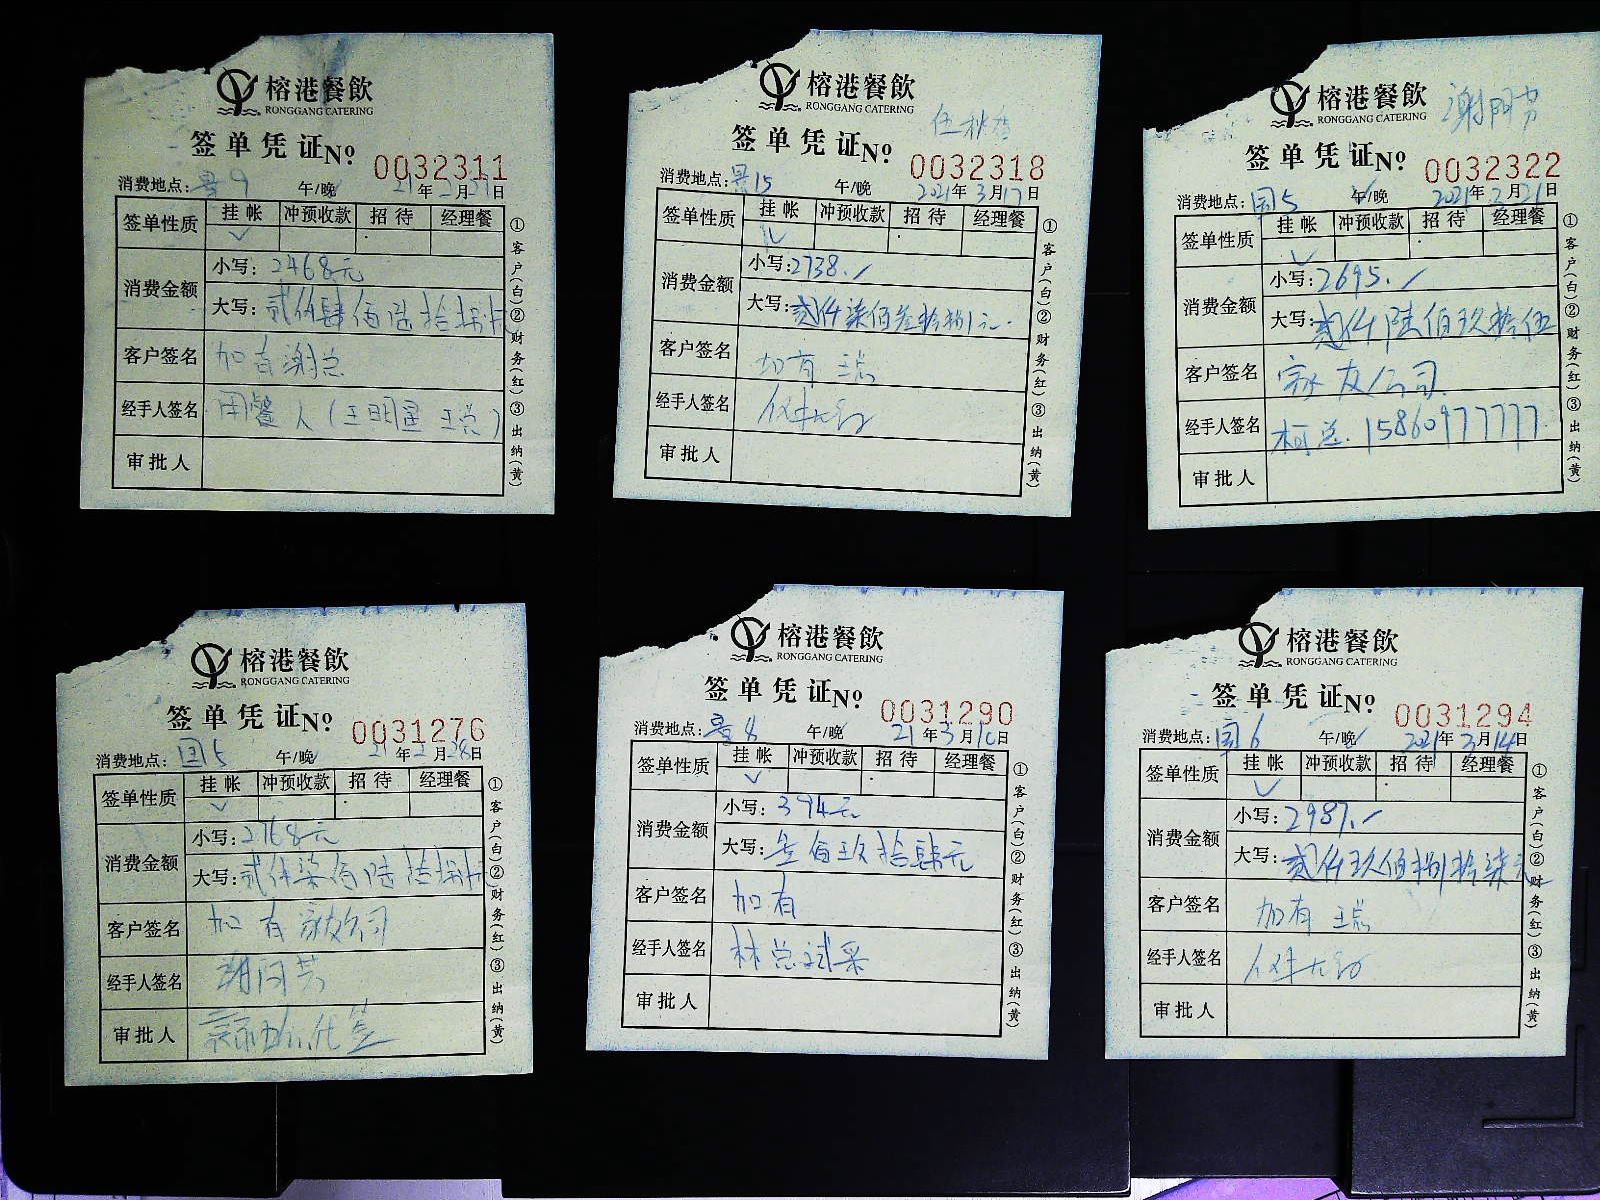 榕港餐飲
RONGGANG CATERING
签单凭证No 0032311
消费地点: 景9 午/晚 21年2月21日
签单性质 挂帐 冲预收款 招待 经理餐
消费金额 小写: 2468元
大写: 贰仟肆佰陆拾捌
客户签名 加有谢总
经手人签名 用餐人(王明星 王总)
审批人
①客户(白)②财务(红)③出纳(黄)
榕港餐飲
RONGGANG CATERING
签单凭证No 0032318
消费地点: 景15 午/晚 2021年3月17日
签单性质 挂帐 冲预收款 招待 经理餐
消费金额 小写: 2738.
大写: 贰仟柒佰叁拾捌元
客户签名 加有 王总
经手人签名
审批人
①客户(白)②财务(红)③出纳(黄)
榕港餐飲
RONGGANG CATERING
签单凭证No 0032322
消费地点: 园5 午/晚 2021年2月21日
签单性质 挂帐 冲预收款 招待 经理餐
消费金额 小写: 2695.
大写: 贰仟陆佰玖拾伍
客户签名 友公司
经手人签名 柯总. 15860977777
审批人
①客户(白)②财务(红)③出纳(黄)
榕港餐飲
RONGGANG CATERING
签单凭证No 0031276
消费地点: 园5 午/晚 21年2月28日
签单性质 挂帐 冲预收款 招待 经理餐
消费金额 小写: 2768元
大写: 贰仟柒佰陆拾捌
客户签名 加有 公司
经手人签名
审批人 代签
①客户(白)②财务(红)③出纳(黄)
榕港餐飲
RONGGANG CATERING
签单凭证No 0031290
消费地点: 景8 午/晚 21年3月10日
签单性质 挂帐 冲预收款 招待 经理餐
消费金额 小写: 394元
大写: 叁佰玖拾肆元
客户签名 加有
经手人签名 林总试菜
审批人
①客户(白)②财务(红)③出纳(黄)
榕港餐飲
RONGGANG CATERING
签单凭证No 0031294
消费地点: 园6 午/晚 2021年3月14日
签单性质 挂帐 冲预收款 招待 经理餐
消费金额 小写: 2987.
大写: 贰仟玖佰捌拾柒元
客户签名 加有 王总
经手人签名
审批人
①客户(白)②财务(红)③出纳(黄)